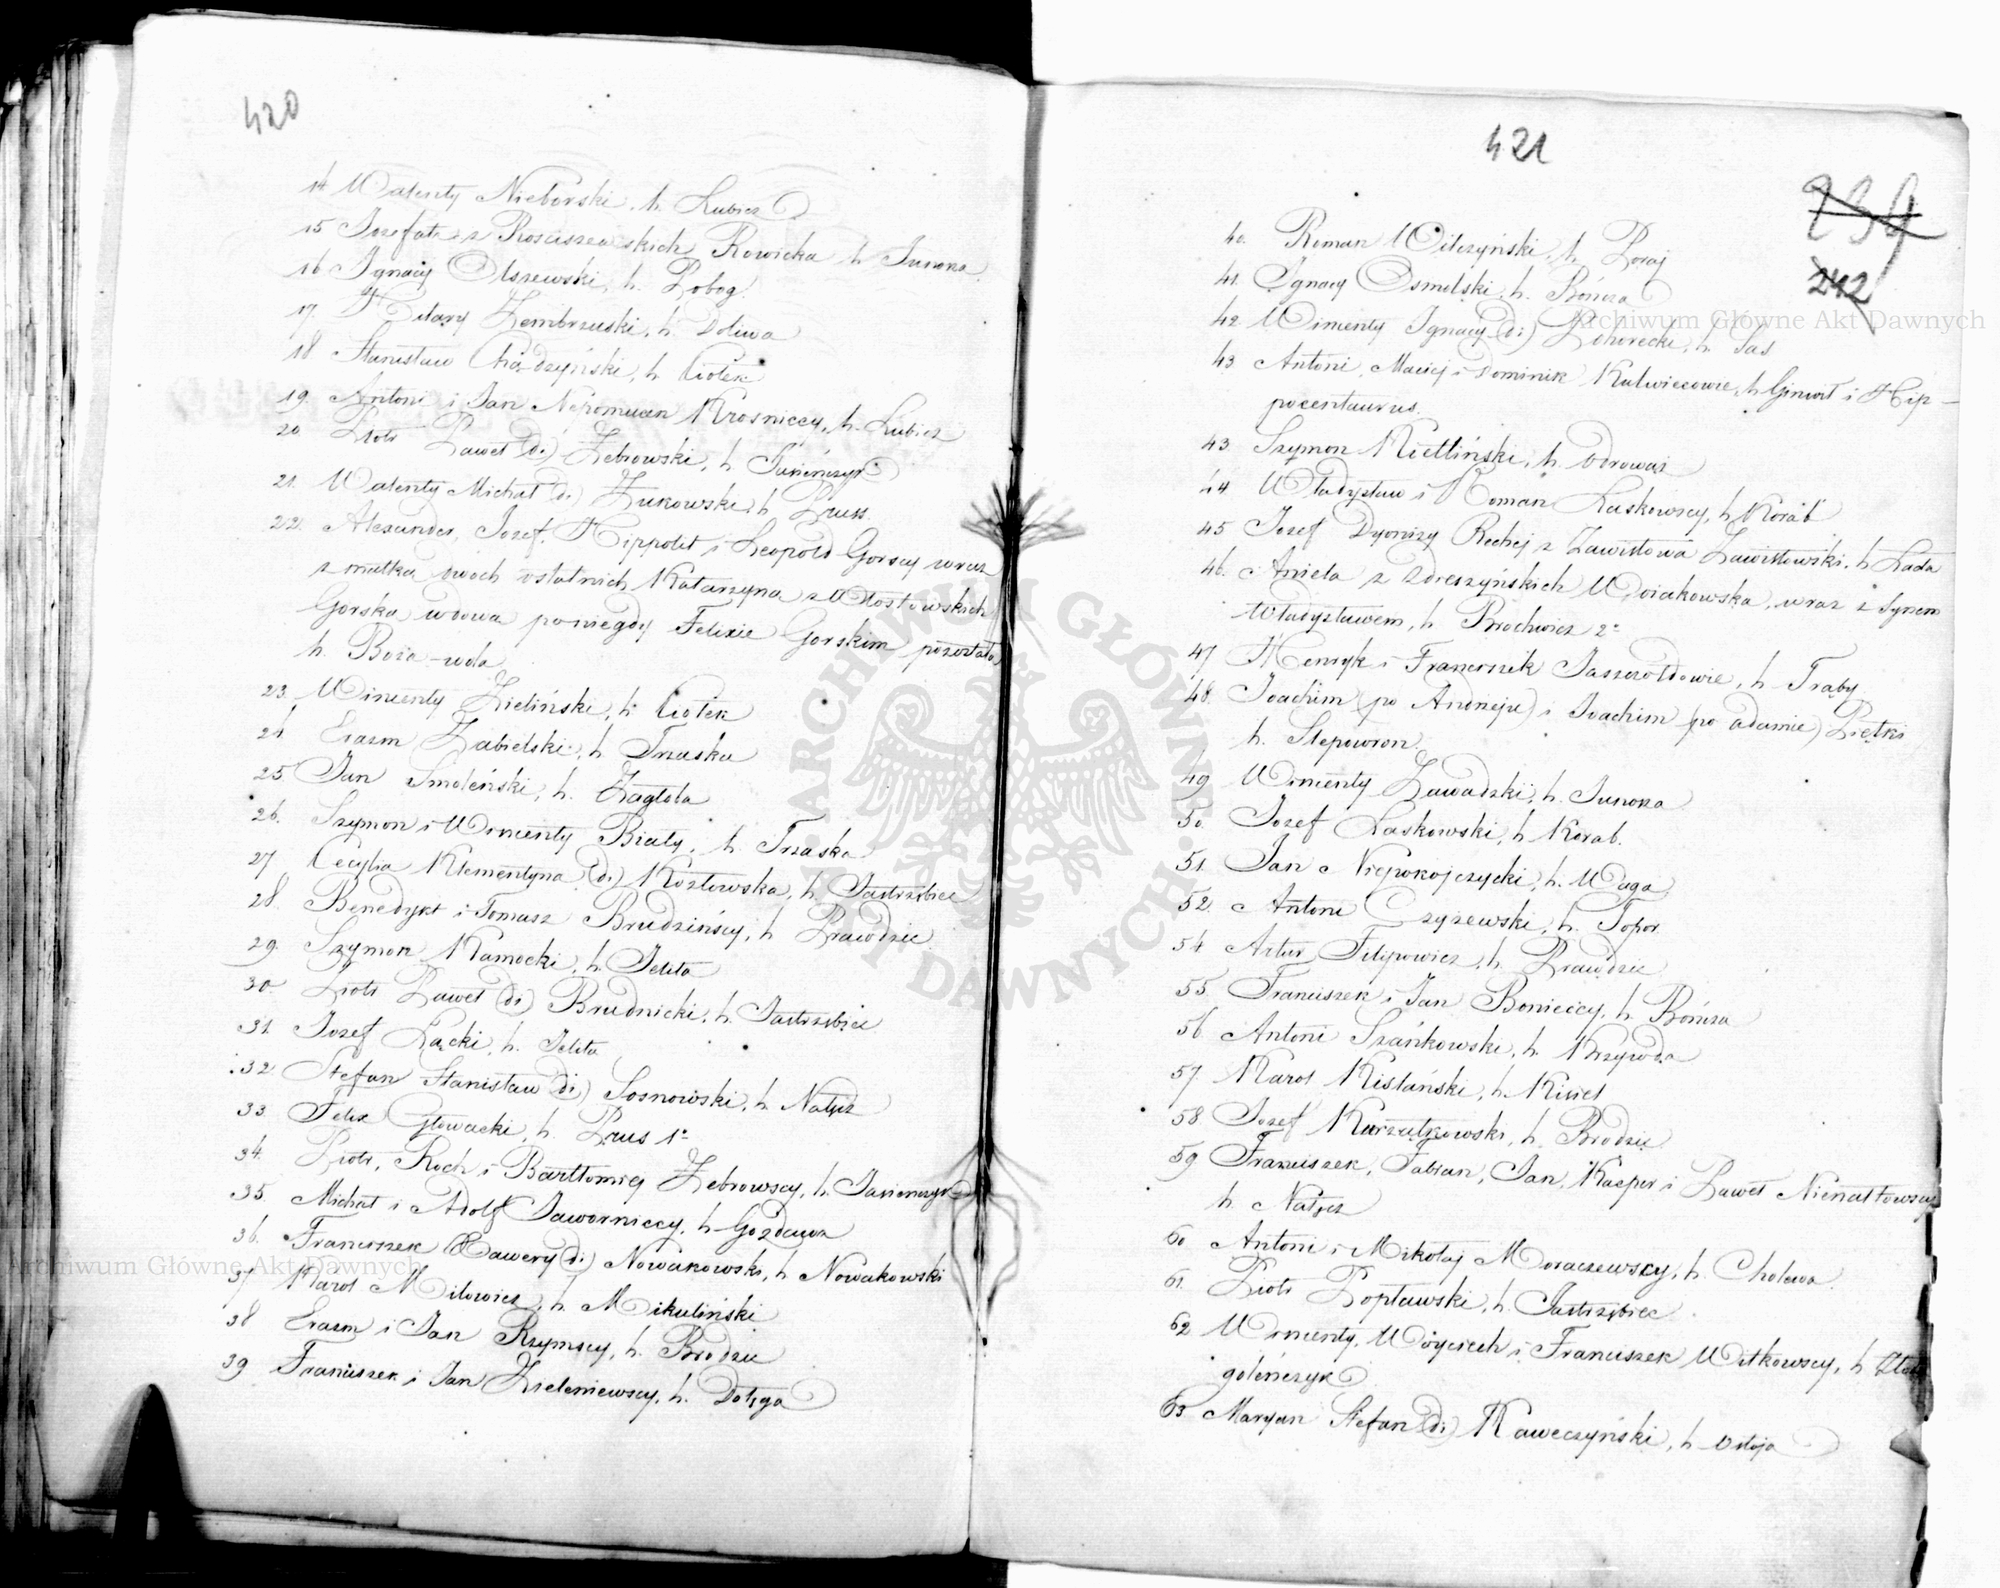 420
14 Walenty Nieborski, h. Lubicz
15 Jozefata z Rościszewskich Rowicka h Junosza
16 Ignacy Olszewski, h. Pobog
17 Hilary Zembrzuski, h. Doliwa
18 Stanisław Chądzyński, h Ciołek
19. Antoni i Jan Nepomucen Krosniccy, h. Lubicz
20. Piotr Paweł (2i) Żebrowski, h Jasieńczyk
21. Walenty Michał (2i) Żukowski, h Pruss.
22. Alexander, Jozef, Hippolit i Leopold Gorscy wraz
z matką dwóch ostatnich Katarzyną z Chostowskich
Gorską wdową po niegdy Felixie Gorskim pozostałą
h. Boża-wola
23. Wincenty Zieliński, h. Ciołek
24 Erazm Zabielski, h. Trzaska
25 Jan Smoleński, h. Zagłoba
26. Szymon i Wincenty Biały, h. Trzaska
27 Cecylia Klementyna (2i) Kozłowska, h. Jastrzębiec
28. Benedykt i Tomasz Brudzińscy, h Prawdzic
29. Szymon Kamocki, h. Jelita
30. Piotr Paweł (2i) Brudnicki, h. Jastrzębiec
31. Jozef Łącki, h. Jelita
32 Stefan Stanisław (2i) Sosnowski, h. Nałęcz
33 Felix Głowacki, h. Prus 1º
34. Piotr, Roch i Bartłomiej Żebrowscy, h. Jasieńczyk
35. Michał i Adolf Jaworniccy, h. Gozdawa
36. Franciszek Xawery (2i) Nowakowski, h Nowakowski
37 Karol Milowicz, h. Mikuliński
38 Erazm i Jan Rzymscy, h. Brodzic
39 Franciszek i Jan Zieleniewscy, h. Dołęga
421
239
242
40. Roman Wilczyński, h. Poraj
41. Ignacy Osmolski, h. Bończa
42 Wincenty Ignacy (2i) Kohorecki, h. Sas
43 Antoni, Maciej i Dominik Kulwiecowie, h Ginwił i Hip-
pocentaurus.
43. Szymon Kietliński, h. Odrowąż
44. Władysław i Roman Laskowscy, h Korab
45 Jozef Dyonizy Rechej z Zawistowa Zawistowski, h Łada
46. Aniela z Zdieszyńskich Wdziakowska, wraz z Synem
Władysławem, h Brochwicz 2º
47 Henryk i Franciszek Jasszołdowie, h. Trąby.
48. Joachim (po Andrzeju) i Joachim (po Adamie) Piętki
h. Slepowron
49 Wincenty Zawadzki, h. Junosza
50. Jozef Laskowski, h Korab.
51. Jan Niepokojczycki, h. Waga
52. Antoni Czyżewski, h. Topor
54 Artur Filipowicz, h. Prawdzic
55. Franciszek i Jan Bonieccy, h. Bończa
56 Antoni Szańkowski, h. Krzywda
57 Karol Kisłański, h. Kisiel
58 Jozef Karzątkowski, h. Brodzic
59 Franciszek, Fabian, Jan, Kacper i Paweł Nienałtowscy
h. Nałęcz
60 Antoni i Mikołaj Moraczewscy, h. Cholewa.
61. Piotr Popławski, h. Jastrzębiec
62 Wincenty, Woyciech i Franciszek Witkowscy, h
goleńczyk
63 Maryan Stefan (2i) Kaweczyński, h Ostoja
ARCHIWUM GŁÓWNE AKT DAWNYCH
Archiwum Główne Akt Dawnych
Archiwum Główne Akt Dawnych